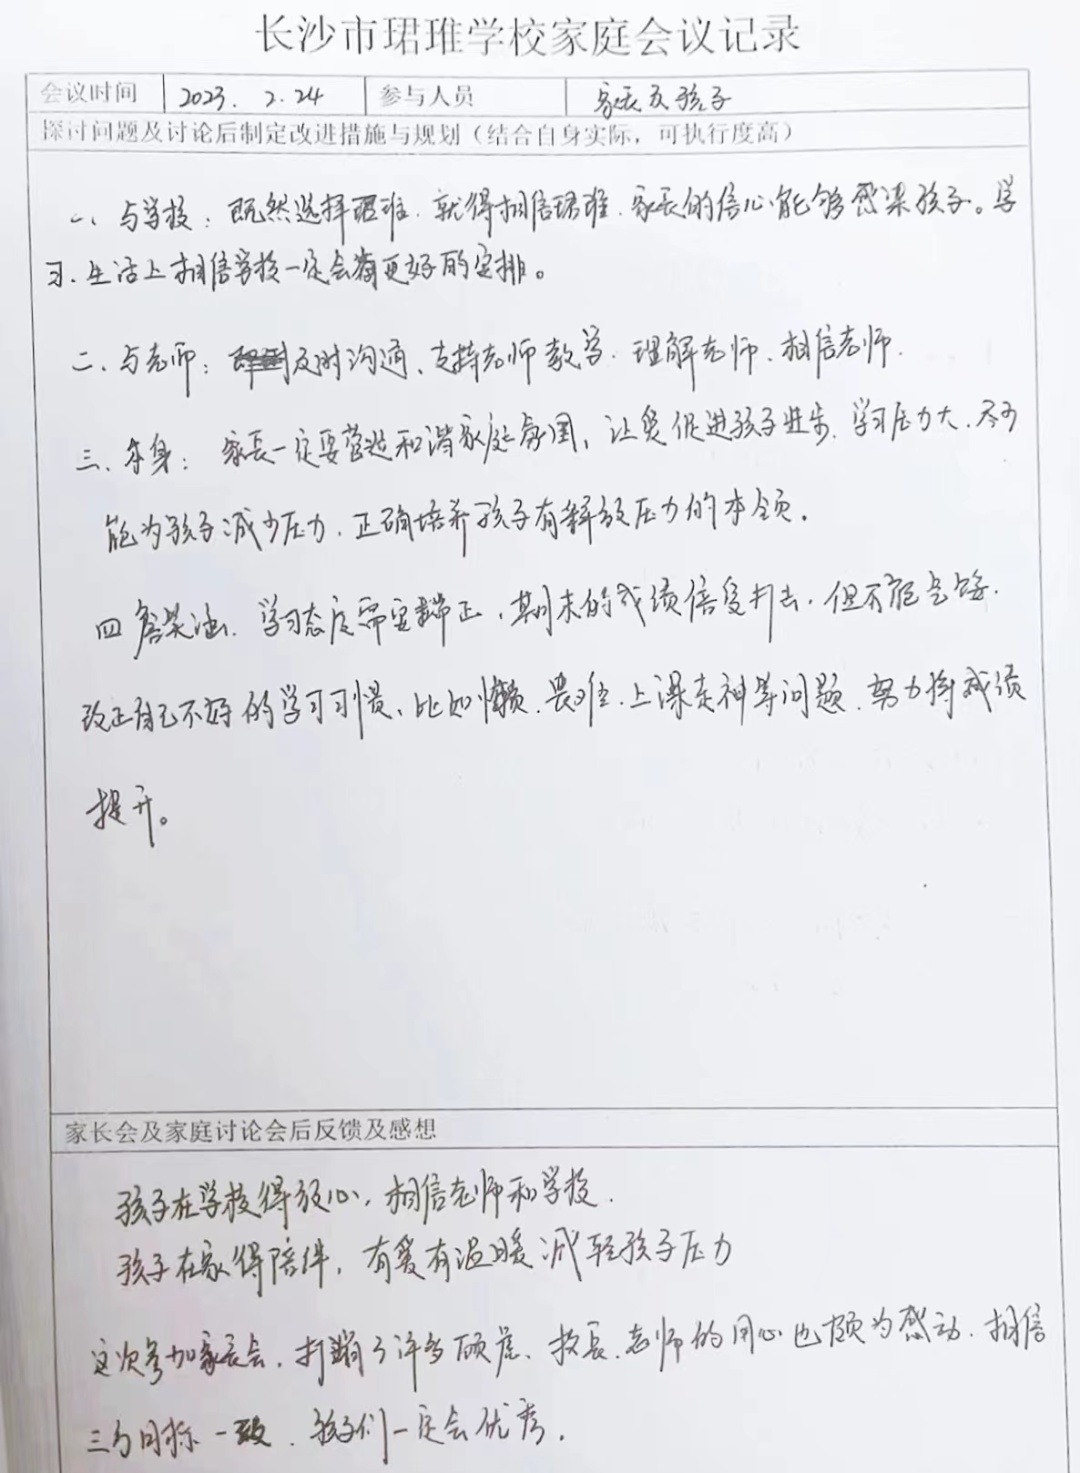 长沙市珺琟学校家庭会议记录
会议时间 2023. 2.24 参与人员 家长及孩子
探讨问题及讨论后制定改进措施与规划（结合自身实际，可执行度高）
一、与学校：既然选择珺琟，就得相信珺琟，家长的信心能够感染孩子。学
习、生活上相信学校一定会有更好的安排。
二、与老师：及时沟通、支持老师教学，理解老师、相信老师.
三、本身：家长一定要营造和谐家庭氛围，让爱促进孩子进步，学习压力大，尽可
能为孩子减少压力，正确培养孩子有释放压力的本领.
四 学习态度需要端正，期末的成绩倍受打击，但不能气馁.
改正自己不好的学习习惯、比如懒、畏难、上课走神等问题，努力将成绩
提升。
家长会及家庭讨论会后反馈及感想
孩子在学校得放心，相信老师和学校.
孩子在家得陪伴，有爱有温暖减轻孩子压力
这次参加家长会，打消了许多顾虑、校长、老师的用心也颇为感动，相信
三方目标一致，孩子们一定会优秀.